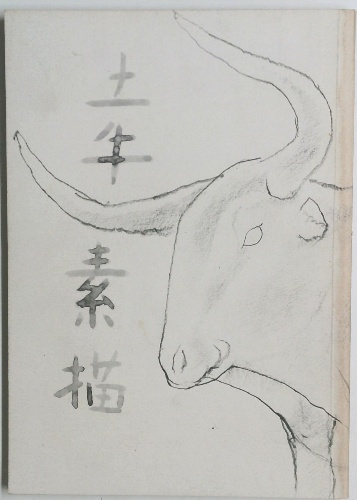 土牛素描